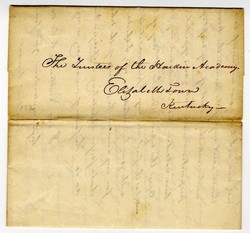 The Trustees of the Hardin Academy
Elizabeth Town
Kentucky —